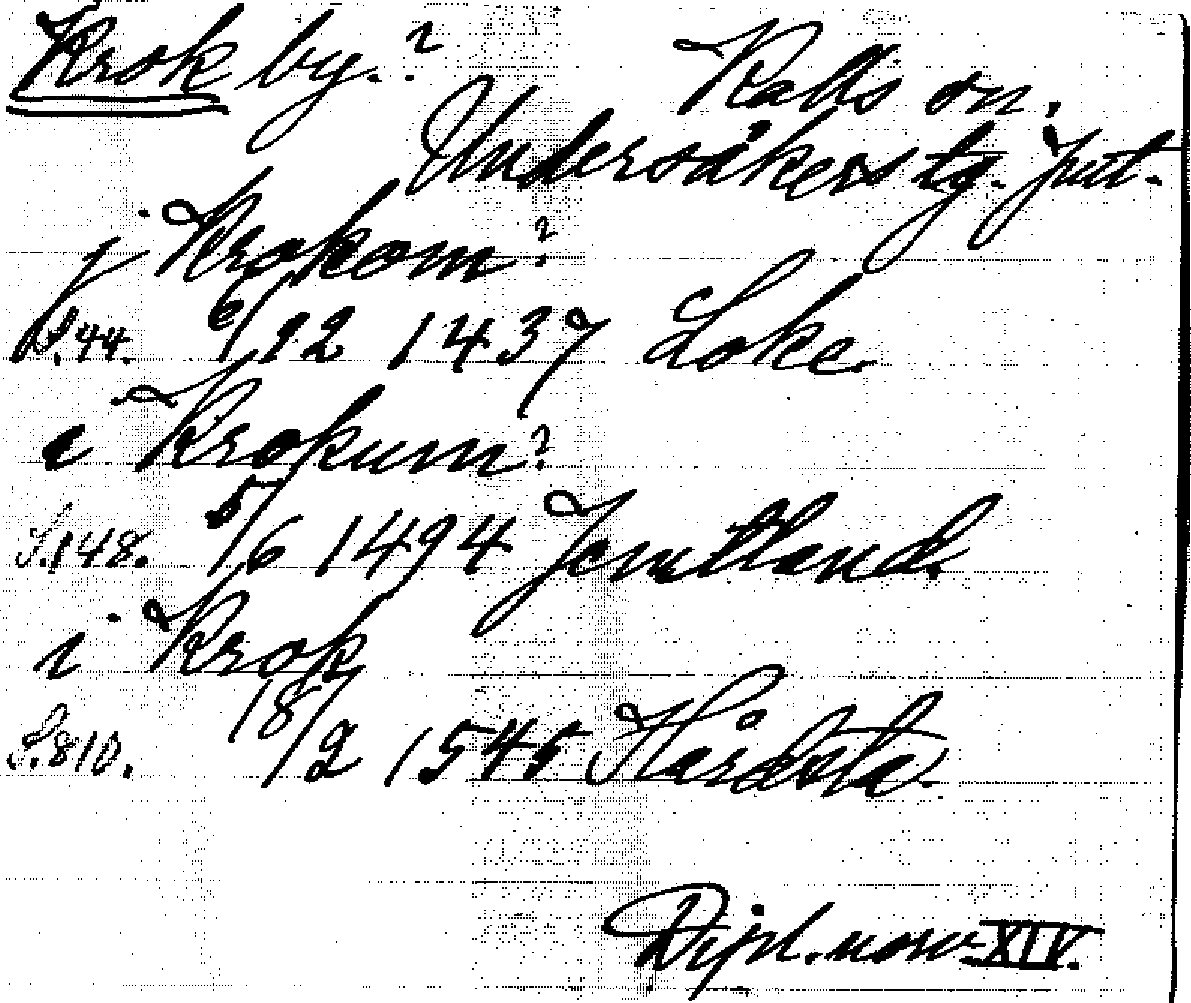 Krok by.? Kalls sn.
Undersåkers tg. Jmt.
i Krokom?
S.44. 6/12 1437 Loke
i Krokum?
S.148. 5/6 1494 Jemtland.
i Krok
S.810. 18/2 1545 Hårdsta.
Dipl. norv. XIV.